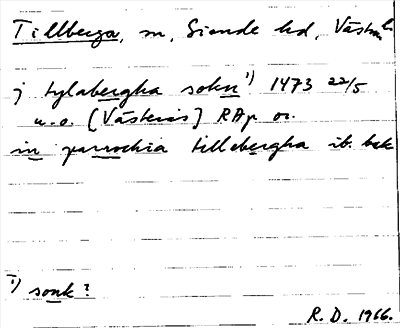 Tillberga, sn, Siende hd, Västml.
j tylabergha sokn 1) 1473 22/5
u.o. [Västerås] RAp or.
in parrochia tillabergha ib. bak
1) sonk?
R. D. 1966.